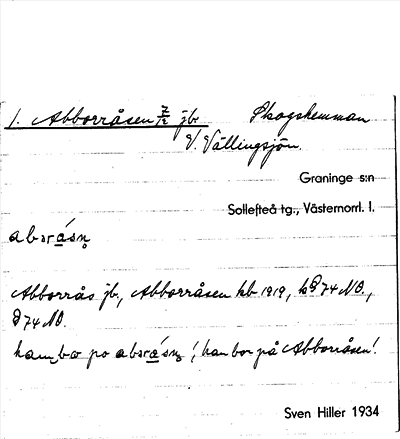 1. Abborråsen 7/2 jb. Skogshemman
V. Vällingsjön.
Graninge s:n
Sollefteå tg., Västernorrl. l.
Abborrås jb., Abborråsen kb 1919, 74 NO,
74 NO.
han bor på Abborråsen!
Sven Hiller 1934